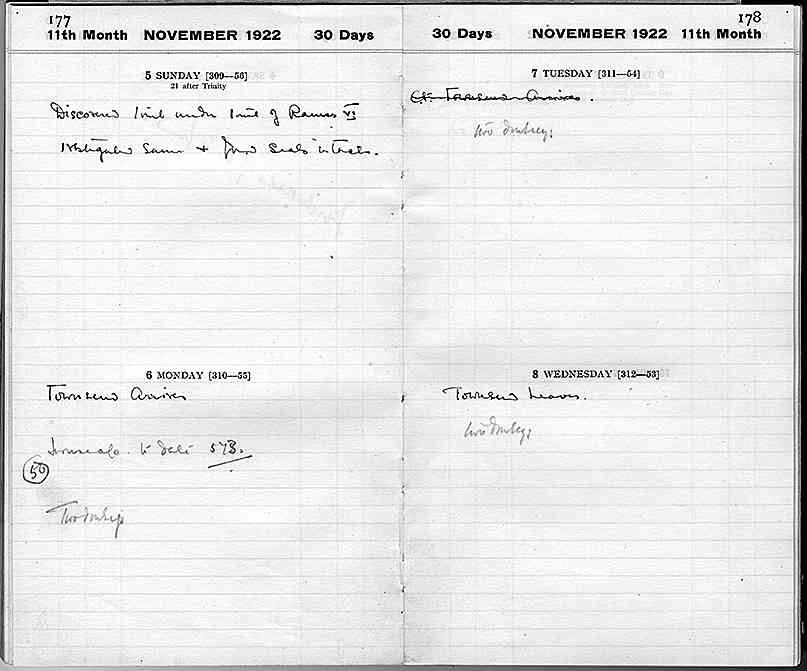 177
11th Month NOVEMBER 1922 30 Days
5 SUNDAY [309—56]
21 after Trinity
Discovered tomb under tomb of Ramses VI
Investigated same & found seals intact.
6 MONDAY [310—55]
Townsend Arrives
to date 573.
50
Two donkeys
178
30 Days NOVEMBER 1922 11th Month
7 TUESDAY [311—54]
Townsend Arrives.
two donkeys
8 WEDNESDAY [312—53]
Townsend Leaves.
two donkeys